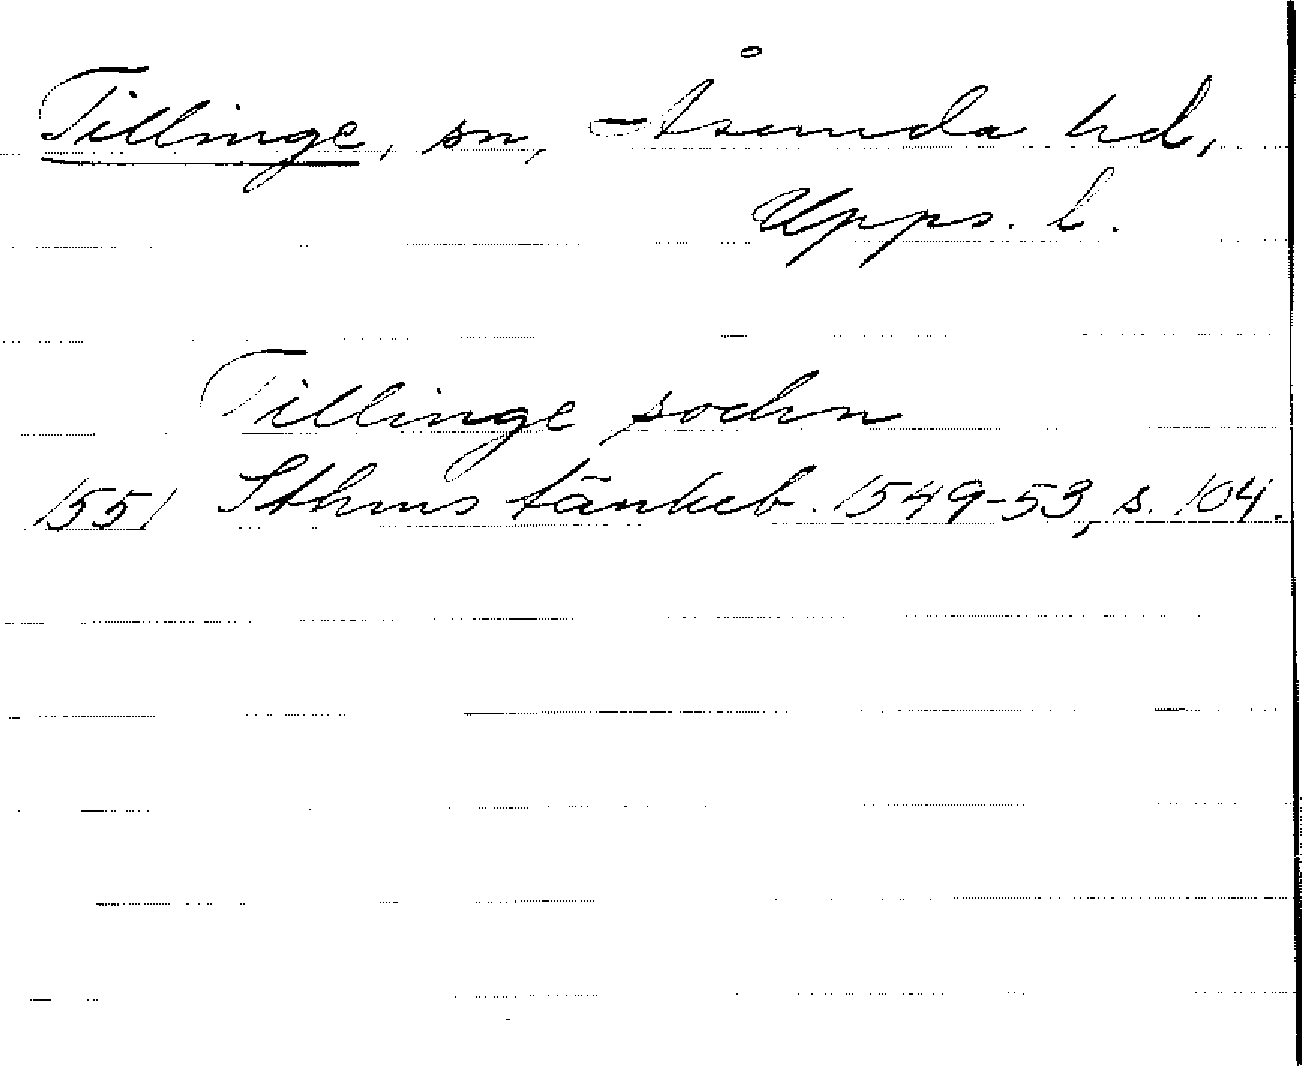 Tillinge, sn, Åsunda hd,
Upps. l.
Tillinge sochn
1551 Sthms tänkeb. 1549-53, s. 104.